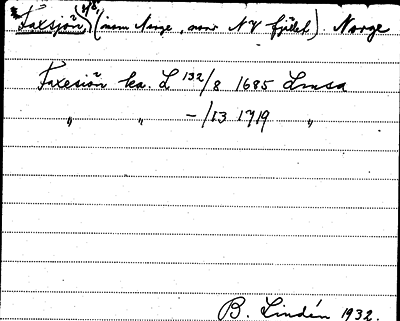 *Faxsjön, (inom Norge, norr NV fjället). Norge
Faxesiön ka. L 132/8 1685 Lmsa
" " -/13 1719 "
B. Lindén 1932.